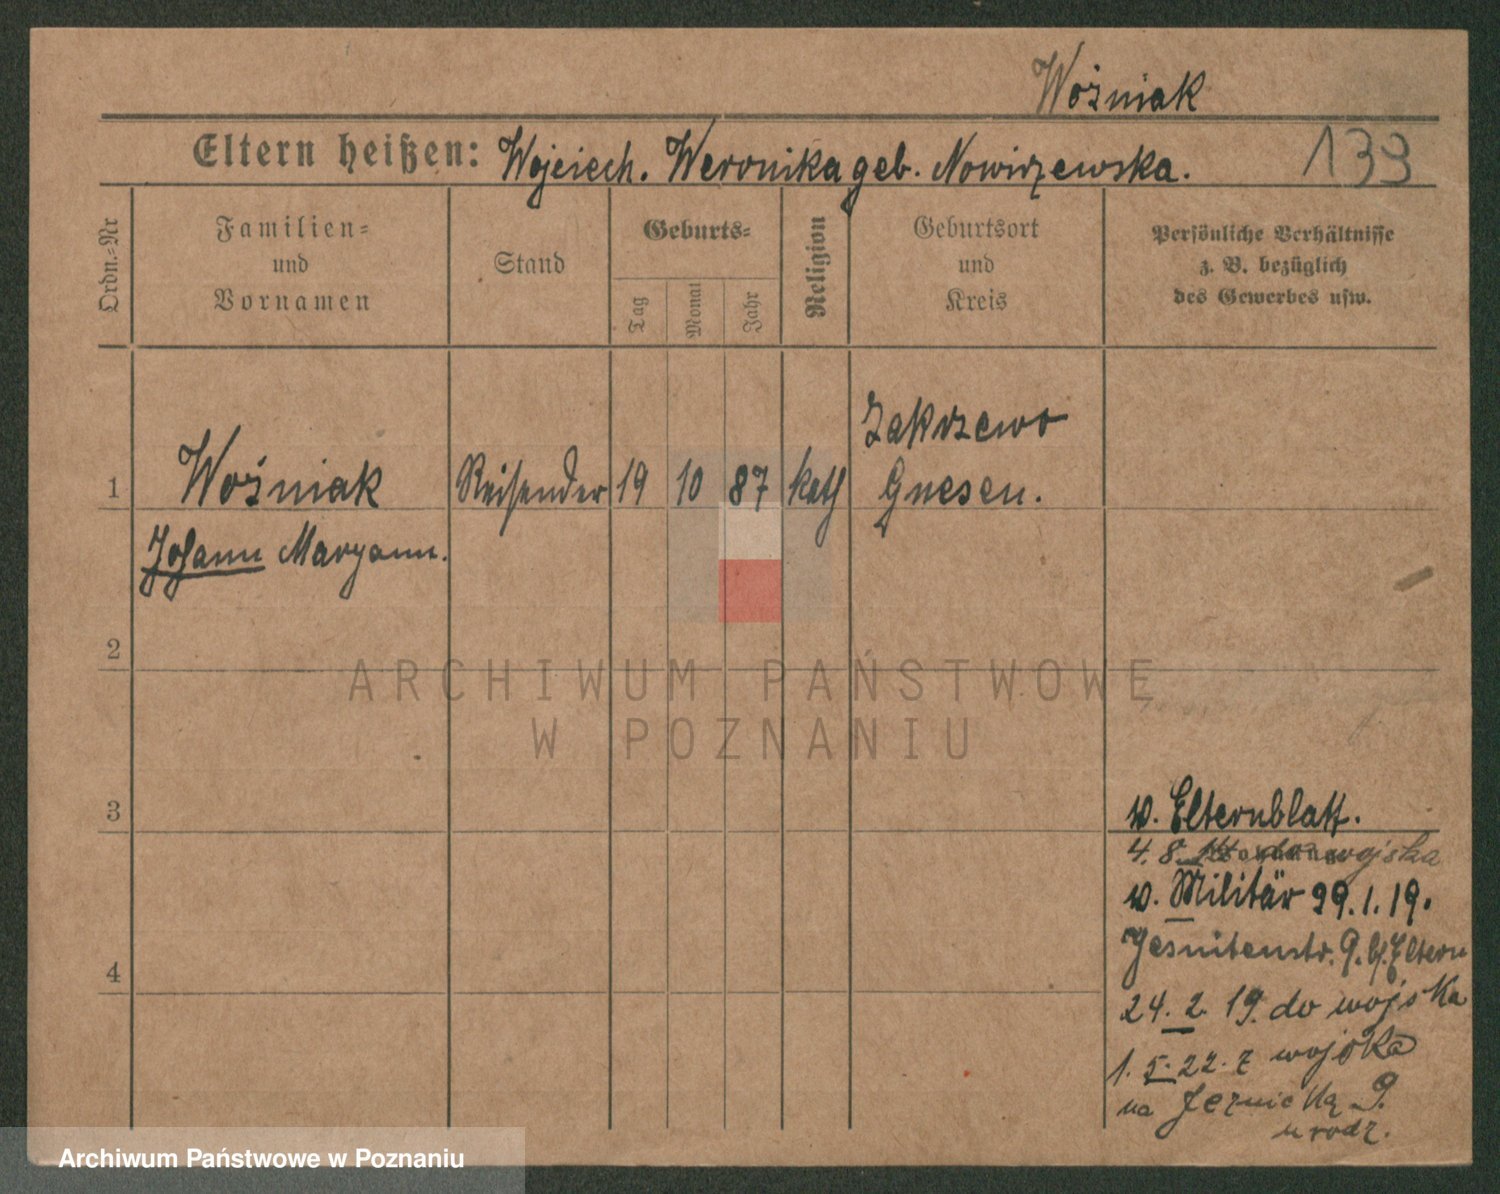 Woźniak
Eltern heißen: Wojciech. Weronika geb. Nowirzewska.
139
Ordn.-Nr
Familien-
und
Vornamen
Stand
Geburts-
Tag
Monat
Jahr
Religion
Geburtsort
und
Kreis
Persönliche Verhältnisse
z. B. bezüglich
des Gewerbes usw.
1
Woźniak
Johann Maryann.
Reisender
19
10
87
kath
Zakrzewo
Gnesen.
2
3
4
v. Elternblatt.
4. 8. wojska
v. Militär 29. 1. 19.
Jesuitenstr. 9. b/. Eltern
24. 2. 19. do wojska
1. 5. 22. z wojska
na Jezuicką 9.
u rodz.
ARCHIWUM PAŃSTWOWE
W POZNANIU
Archiwum Państwowe w Poznaniu